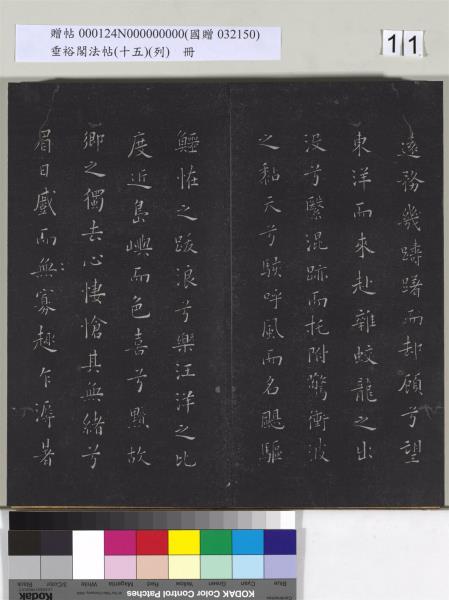 贈帖 000124N000000000(國贈 032150)
垂裕閣法帖(十五)(列)　冊
11
遠務幾躊躇而却顧兮望
東洋而來赴雜蛟龍之出
没兮繄混跡而托附驚衝波
之黏天兮駭呼風而名颶驅
鱷怪之跋浪兮樂汪洋之比
度近島嶼而色喜兮黯故
鄉之獨去心悽愴其無緒兮
眉目戲而無寡趣乍潯暑
Blue
Cyan
Green
Yellow
Red
Magenta
White
3/Color
Black
KODAK Color Control Patches